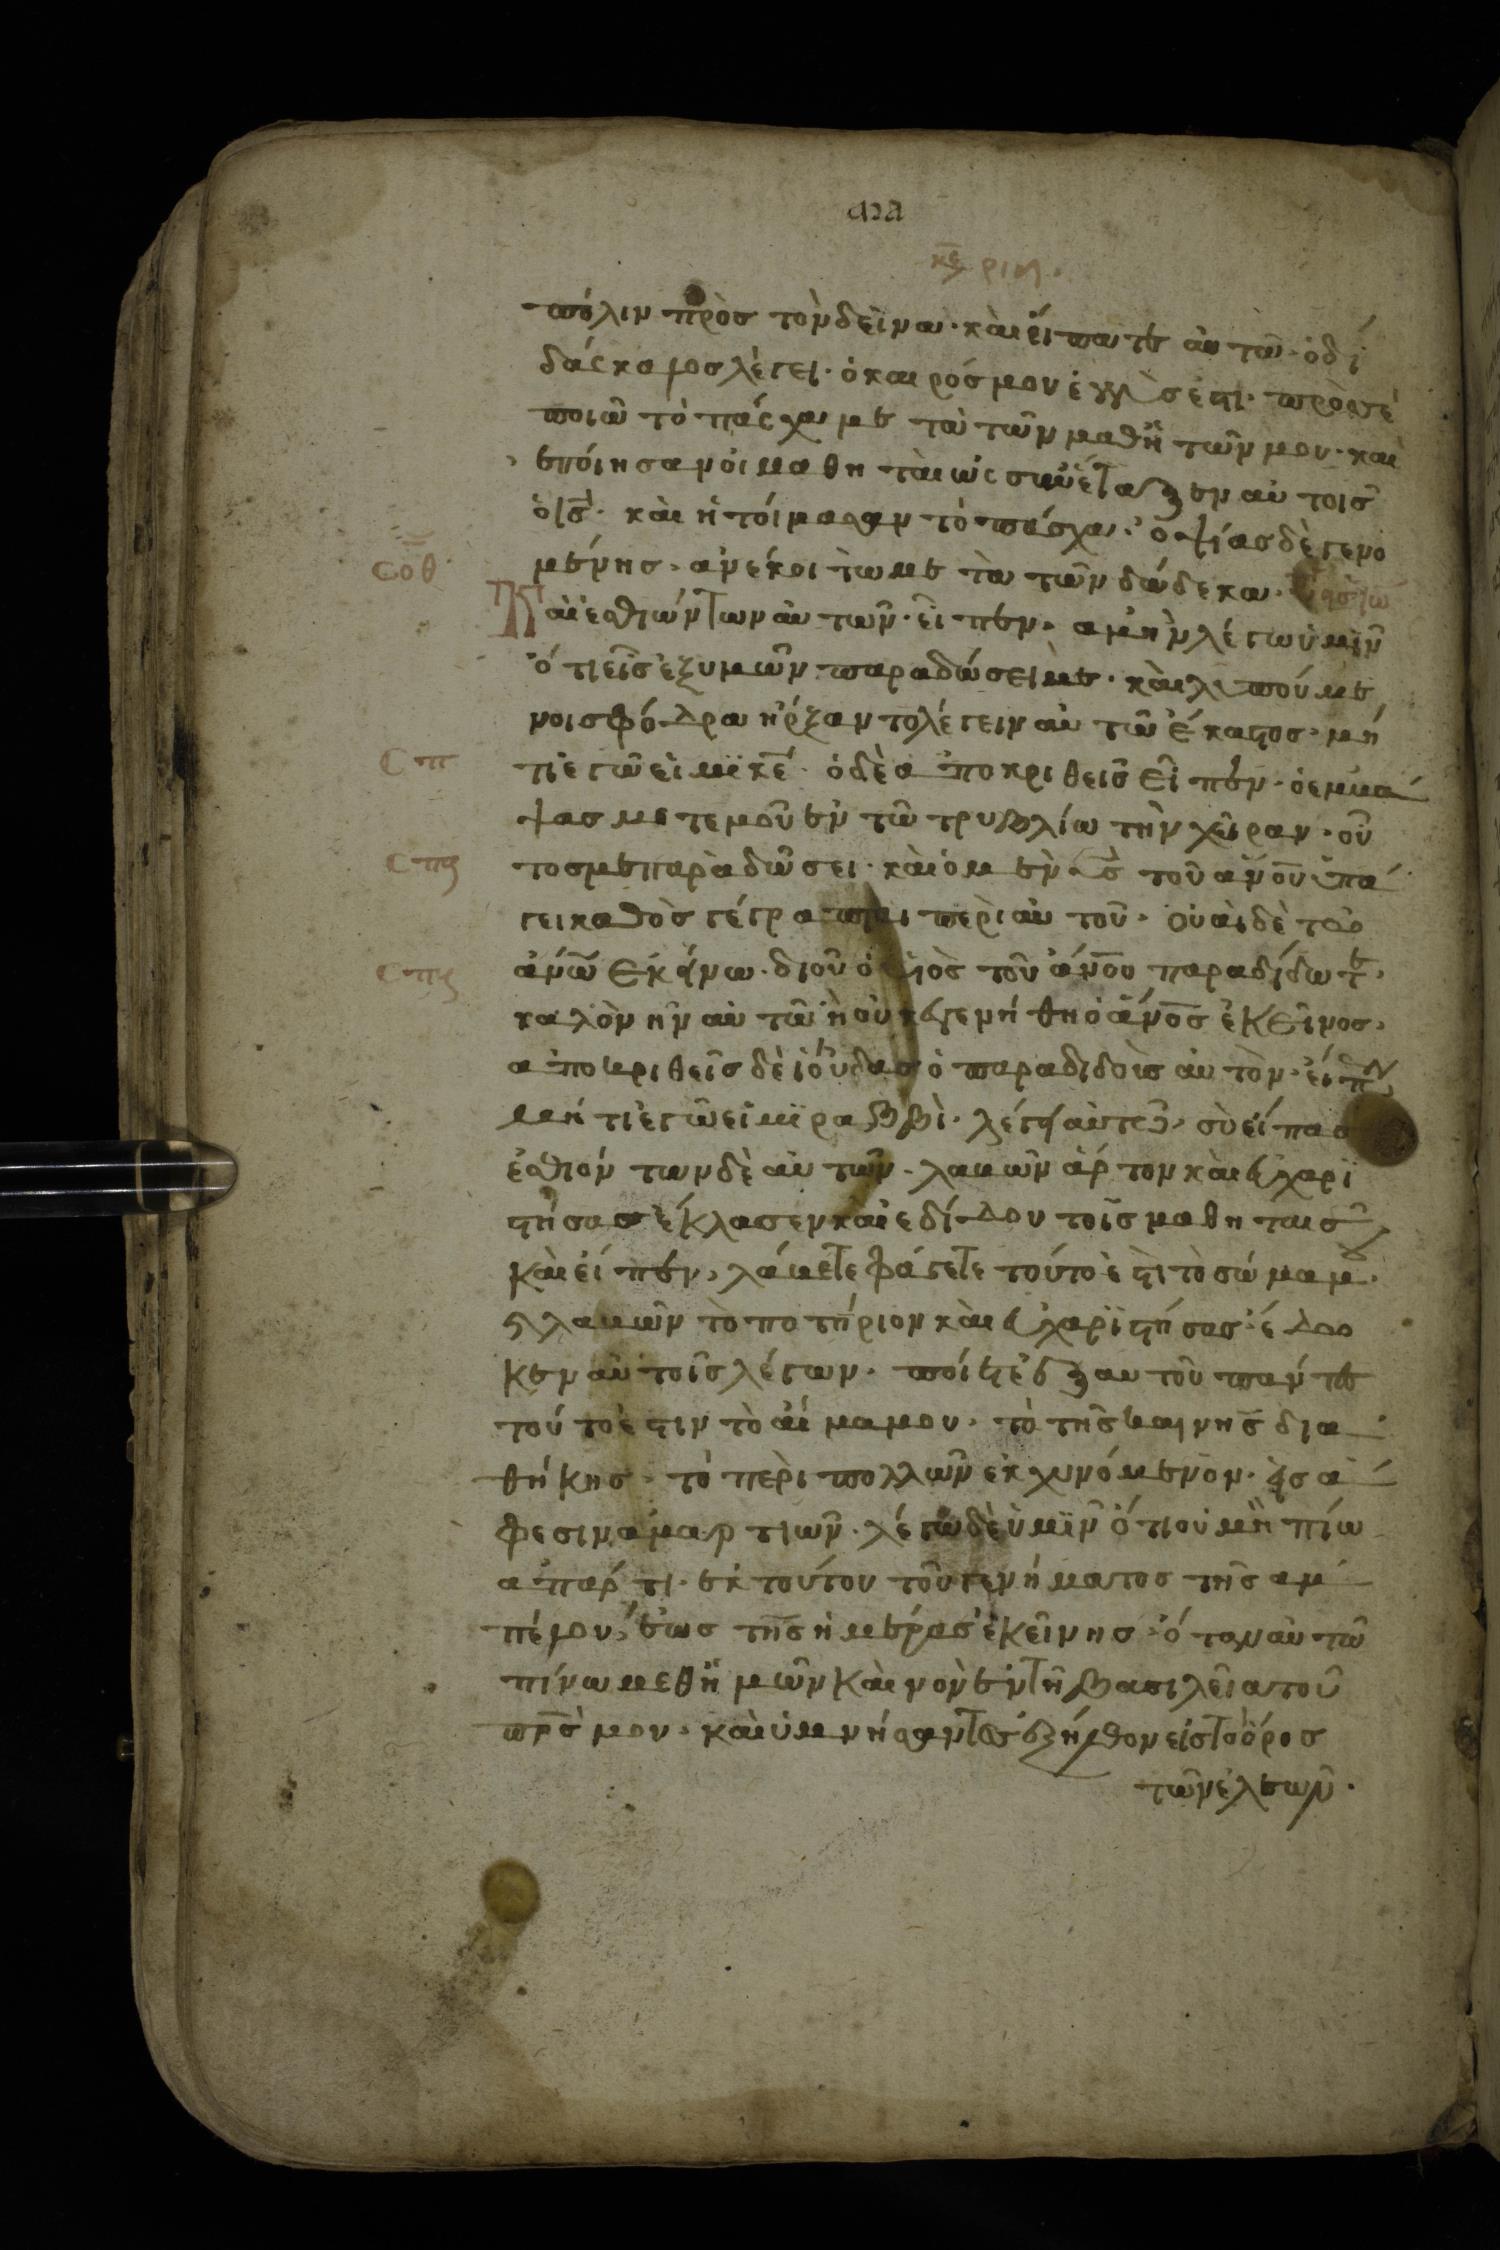 κε ριη.
πόλιν πρὸσ τὸν δεῖνα· καὶ εἴπατε αὐτῶ· ὁ δι
δάσκαλοσ λέγει· ὁ καιρόσ μου ἐγγύσ ἐστι· πρὸσ σὲ
ποιῶ τὸ πάσχα μετὰ τῶν μαθητῶν μου· καὶ
ἐποίησαν οἱ μαθηταὶ ὡσ συνέταξεν αὐτοῖσ
ὁ ισ· καὶ ἡτοίμασαν τὸ πάσχα· ὀψίασ δὲ γενο
σοθ
μένησ· ἀνέκειτω μετὰ τῶν δώδεκα·
Καὶ ἐσθιώντων αὐτῶν· εἶπεν· ἀμὴν λέγω ὑμῖν
ὅτι εἷσ ἐξ υμῶν παραδώσει με· καὶ λυπούμε
νοι σφόδρα ἤρξαντο λέγειν αὐτῶ ἕκαστοσ· μή
σπ
τι ἐγῶ εἰμϊ κε· ὁ δὲ ἀποκριθεὶσ εἶπεν· ὁ εμβά
ψασ μετ εμοῦ ἐν τῶ τρυβλίω τὴν χεῖραν· οὗ
τοσ με παραδώσει· καὶ ὁ μὲν υσ τοῦ ανου ὑπά
γει καθὸσ γέγραπται περὶ αὐτοῦ· οὐαὶ δὲ τῶ
ανω ἐκείνω· δι οῦ ὁ υἱὸσ τοῦ ανου παραδίδωτε·
καλὸν ἦν αὐτῶ ἠ οὐκ εγεννήθη ὁ ανοσ ἐκεῖνοσ·
ἀποκριθεὶσ δὲ ἰούδασ ὁ παραδιδοὺσ αὐτὸν· εἶπεν
μή τι ἐγῶ εἰμϊ ραββὶ· λέγει αὐτῶ· σὺ εἶπασ
ἐσθιόντων δὲ αὐτῶν· λαβῶν ἄρτον καὶ εὐχαρι
στήσασ ἔκλασεν καὶ ἐδίδου τοῖσ μαθηταισ
καὶ εἶπεν· λάβετε φάγετε τοῦτό ἐστι τὸ σώμα μου·
καὶ λαβῶν τὸ ποτήριον καὶ εὐχαρϊστήσασ· έδω
κεν αὐτοῖσ λέγων· ποίετε ἐξ αυτοῦ παντε
τοῦτο ἐστιν τὸ αἷμα μου· τὸ τῆσ καινησ δια
θήκησ· τὸ περὶ πολλῶν ἐκχυνόμενον· εἰσ ἄ
φεσιν ἁμαρτιῶν· λέγω δὲ ὑμῖν ὅτι οὐ μὴ πίω
ἀπάρτι· ἐκ τούτου τοῦ γενήματοσ τῆσ αμ
πέλου, ἕωσ τῆσ ἡμέρασ ἐκεῖνησ· ὅταν αὐτῶ
πίνω μεθ ἡμῶν καὶνον ἐν τῆ βασιλεῖα τοῦ
πρσ μου· καὶ ὑμνήσαντεσ ἐξήλθον εἰσ τὸ ὄροσ
τῶν ἐλεῶν·